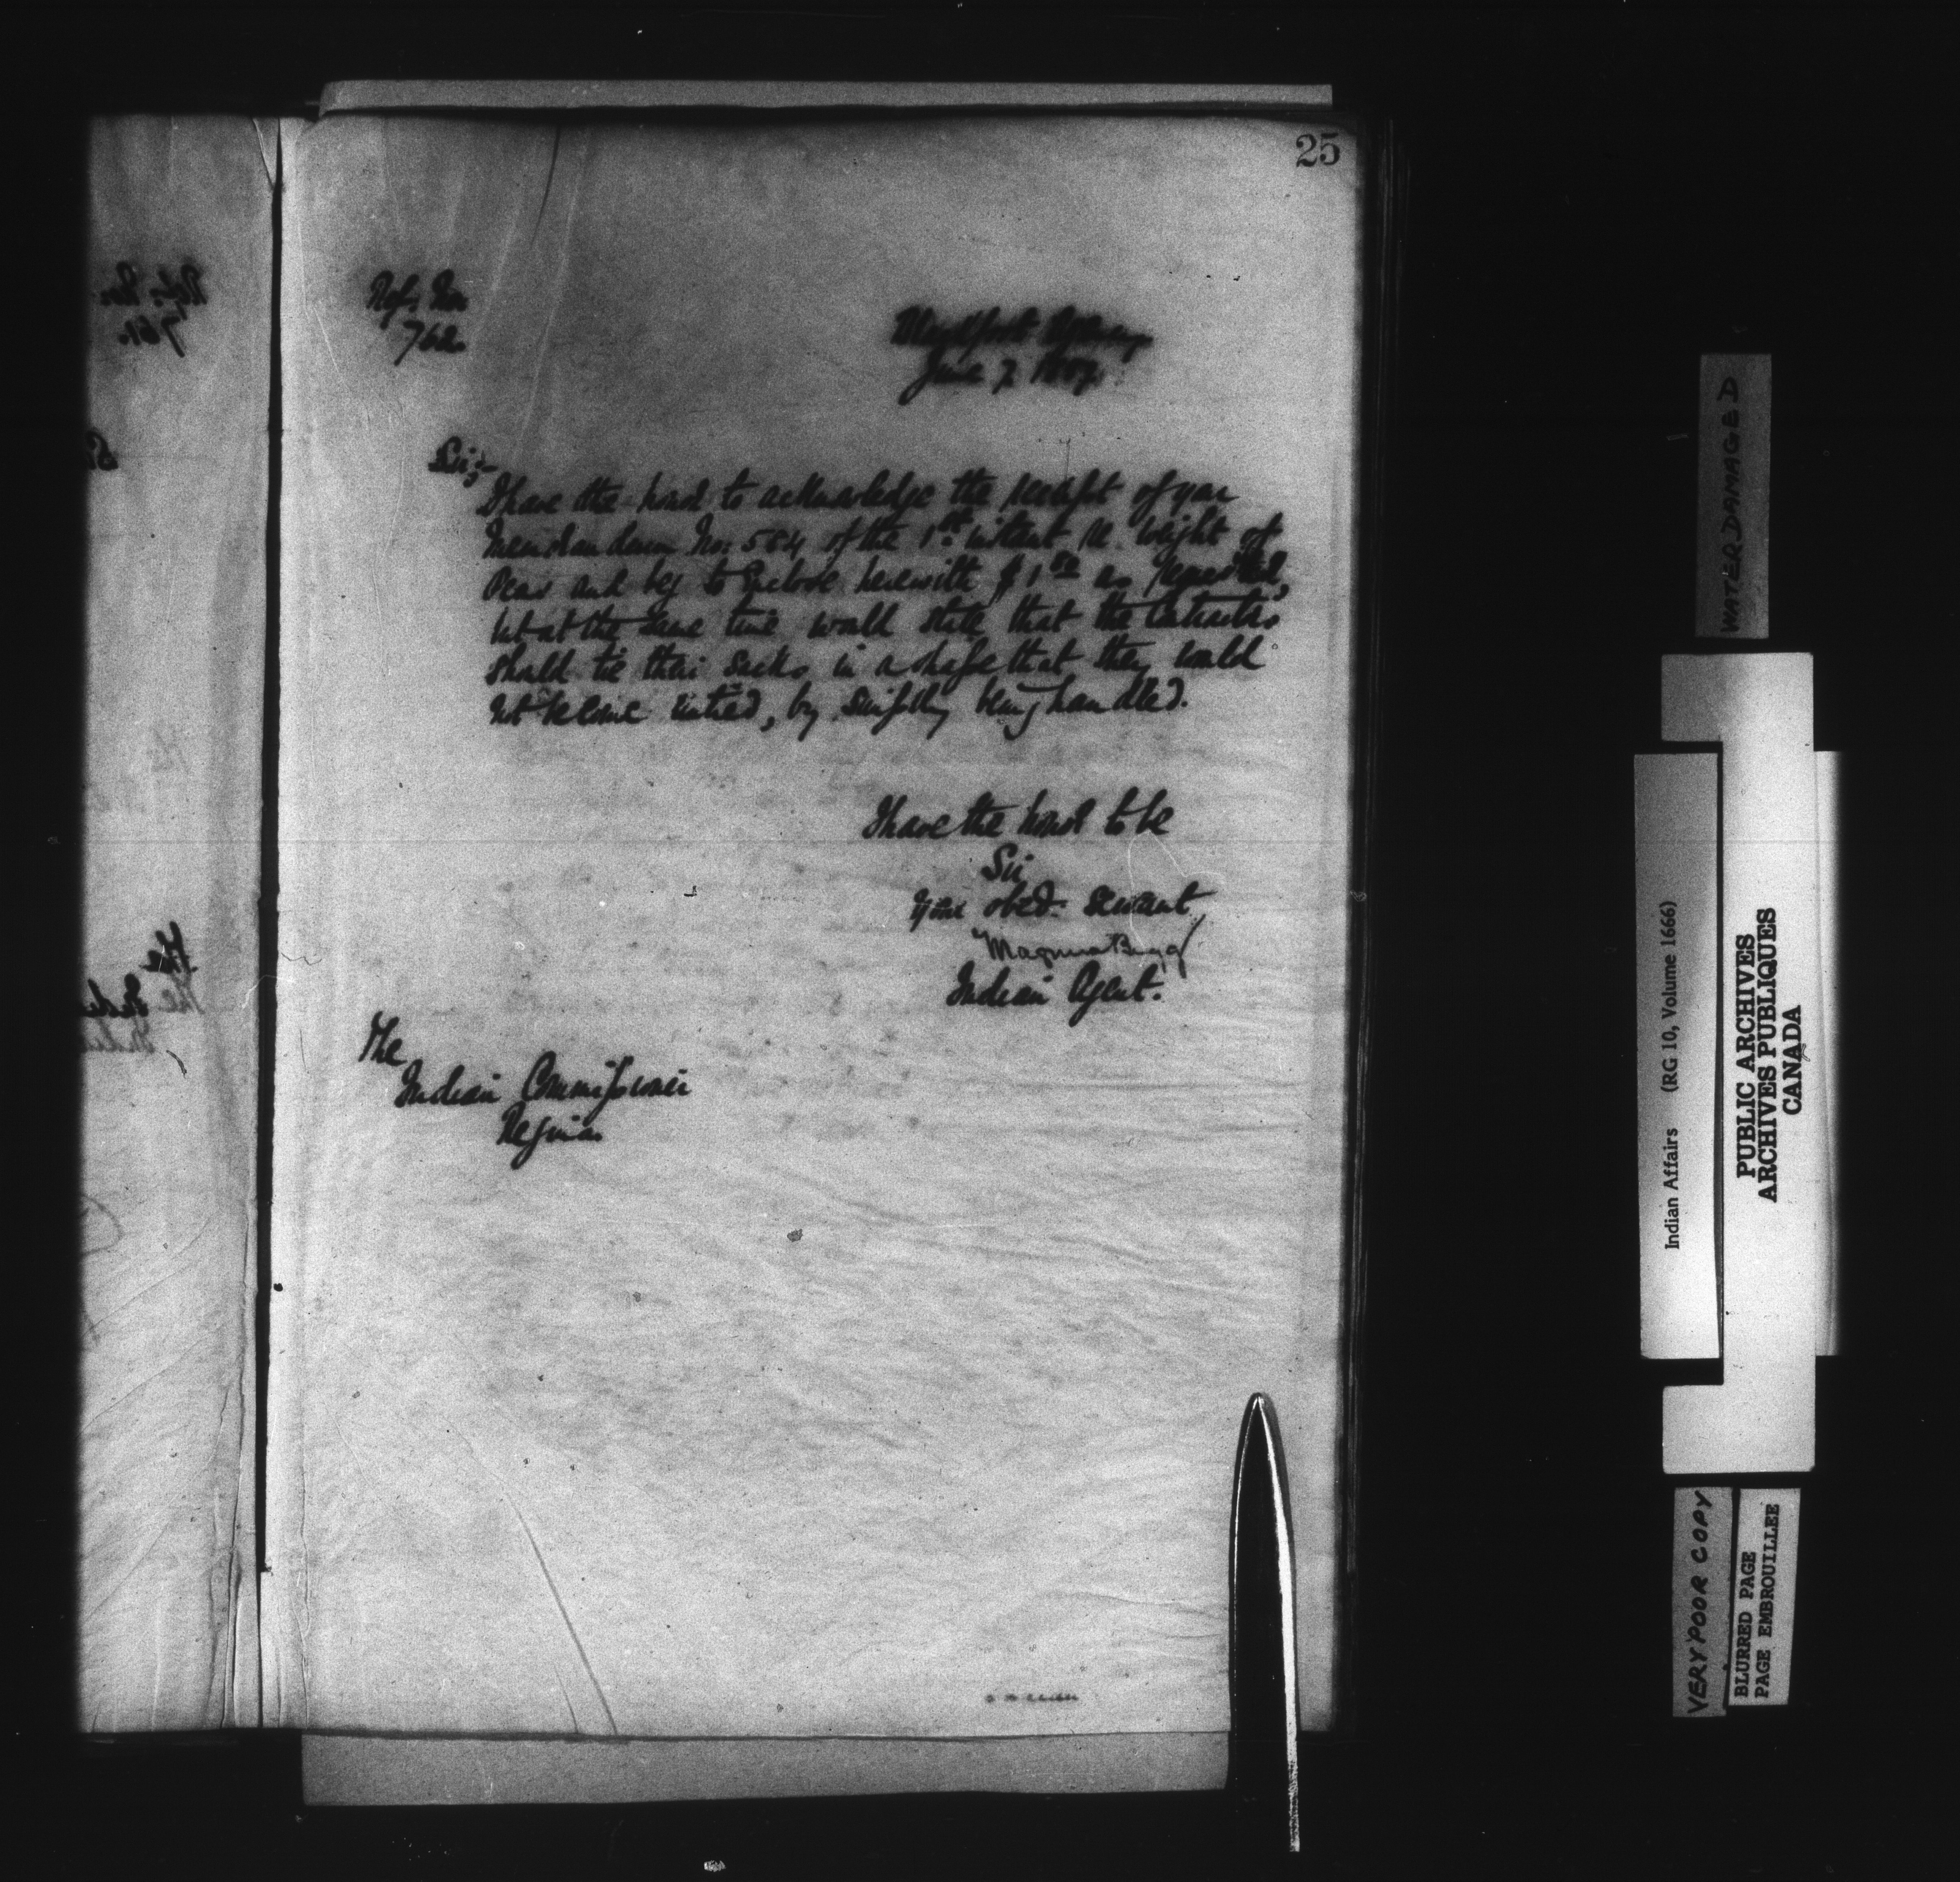 25
Ref: No.
762.
Blackfoot Agency
June 7. 1887.
Sir,
I have the honor to acknowledge the receipt of your
Memorandum No: 584 of the 1st instant re. weight of
Peas and beg to Enclose herewith as requested,
but at the same time would state that the Contractors
should tie their sacks in a shape that they would
not become untied, by simply being handled.
I have the honor to be
Sir
Your obed. servant
Magnus Begg
Indian Agent.
The
Indian Commissioner
Regina
Ref: No.
761.
The
WATER DAMAGED
Indian Affairs (RG 10, Volume 1666)
PUBLIC ARCHIVES
ARCHIVES PUBLIQUES
CANADA
VERY POOR COPY
BLURRED PAGE
PAGE EMBROUILLEE